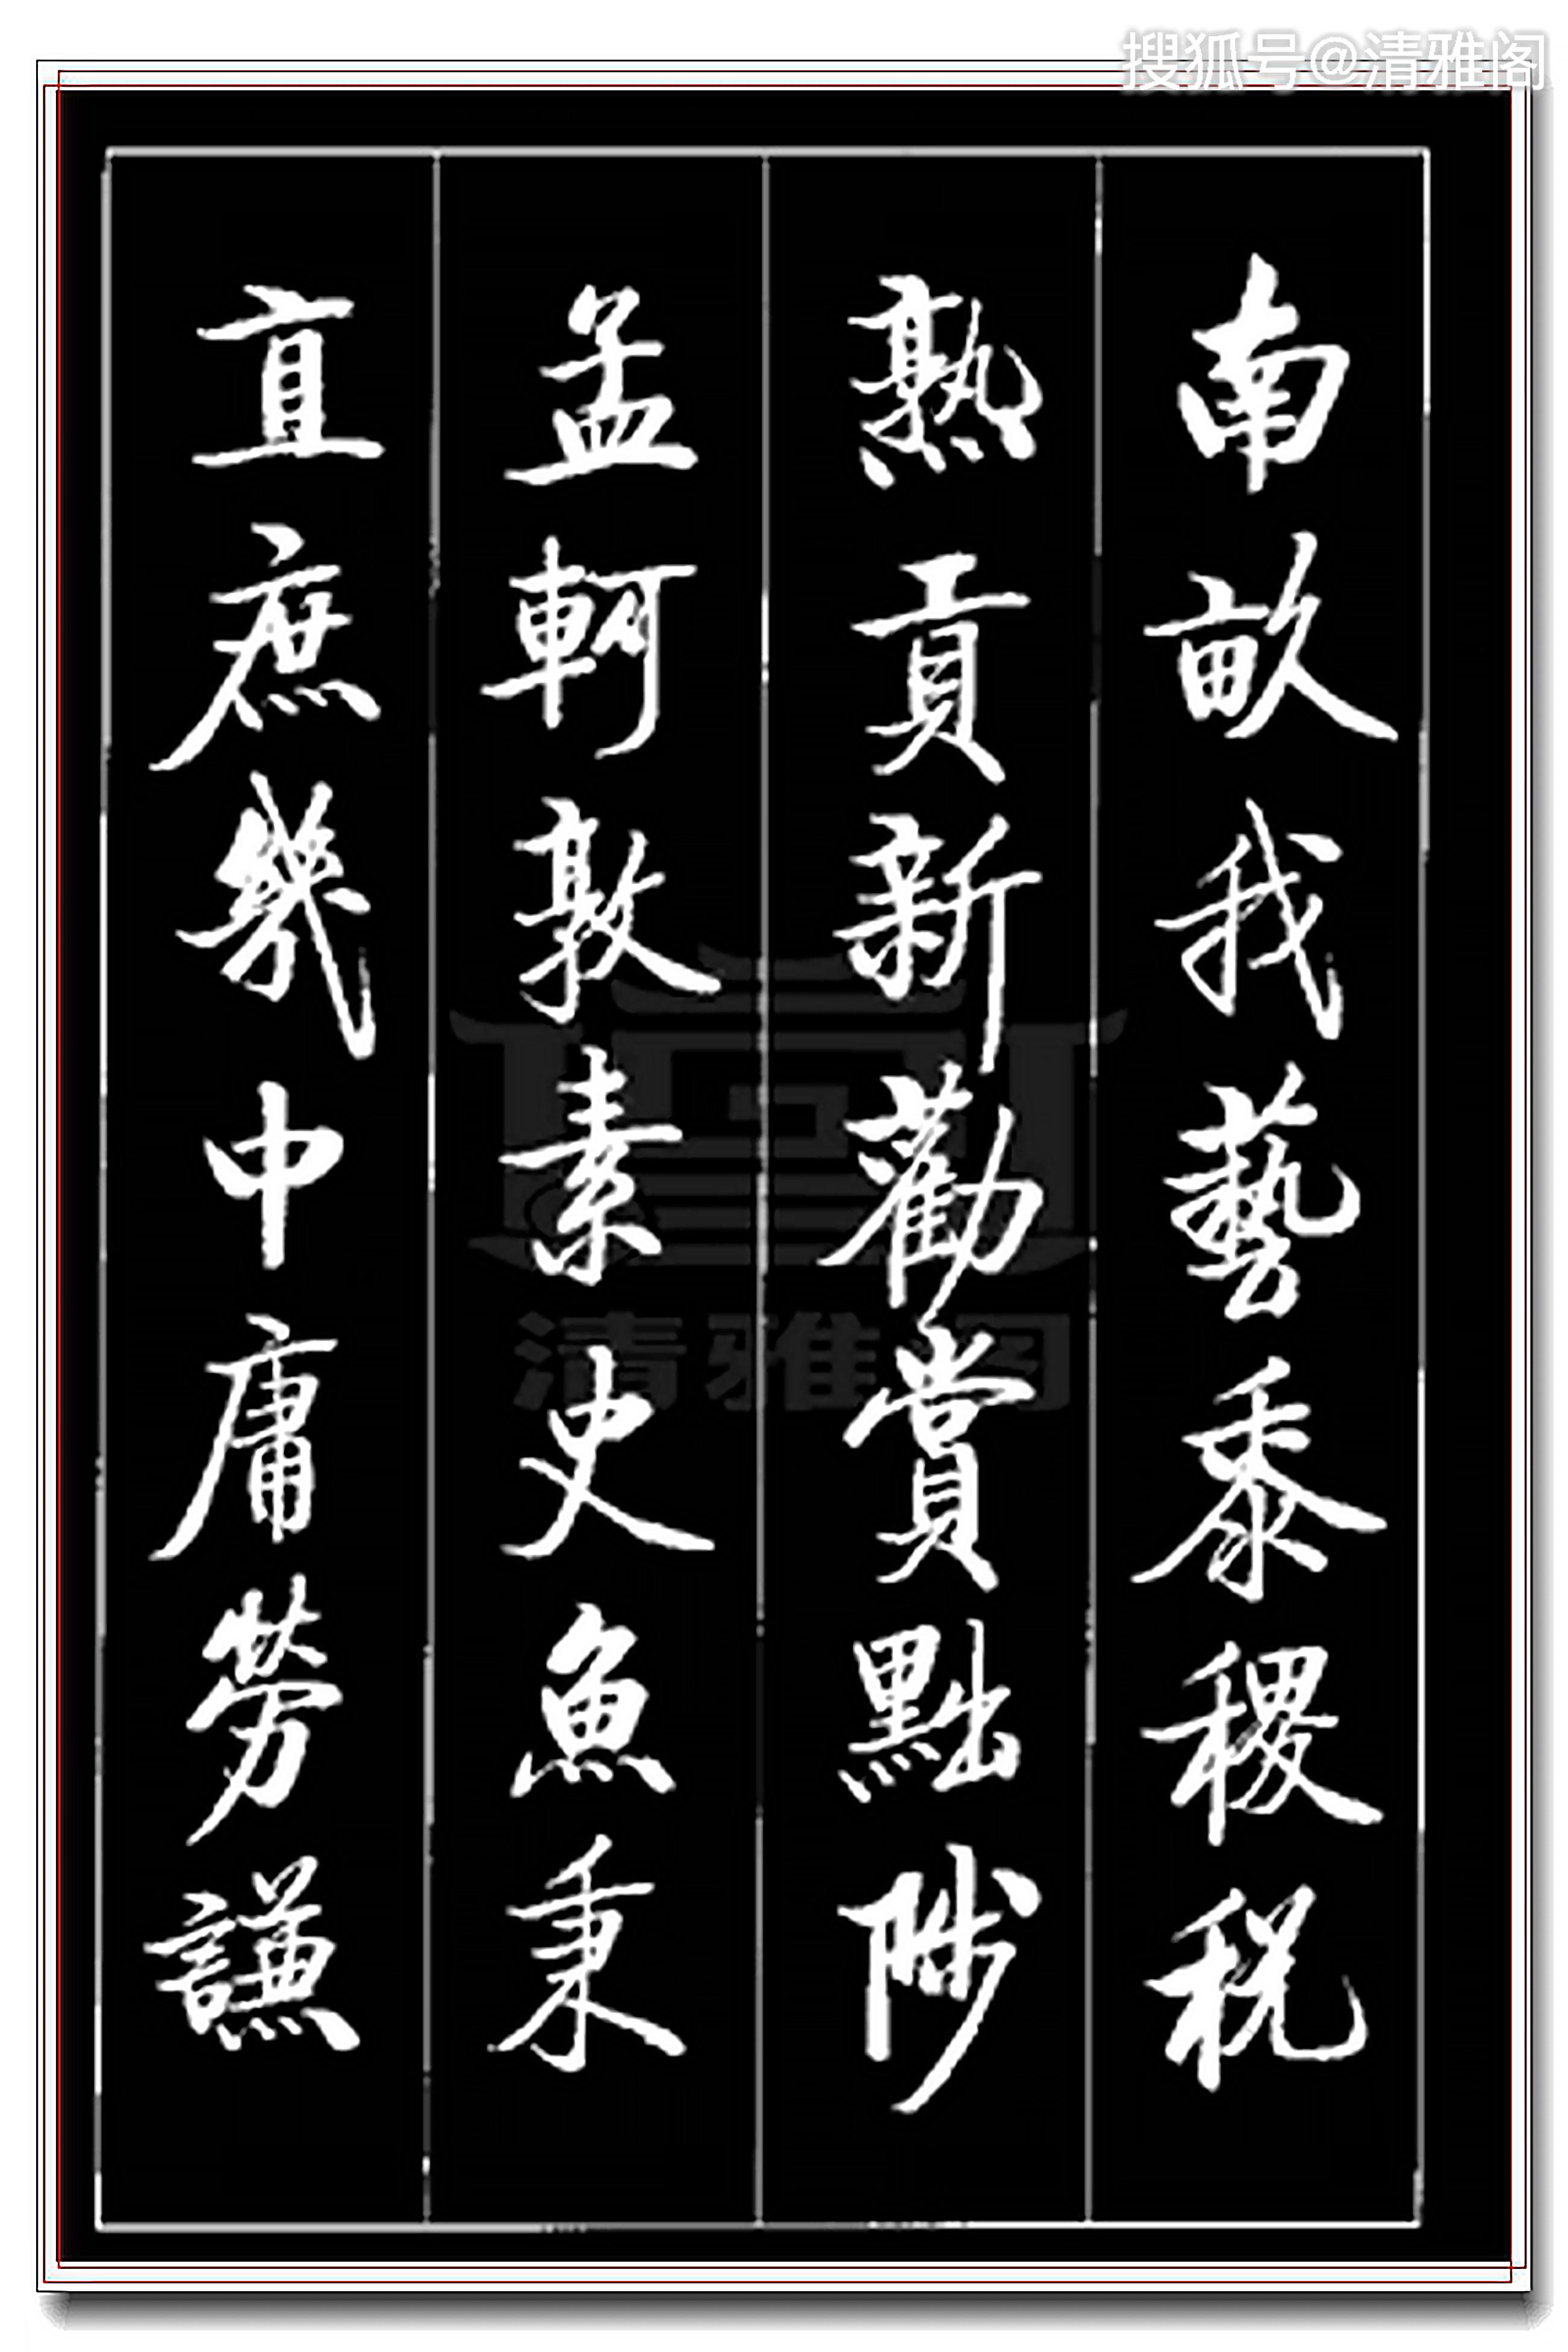 搜狐号@清雅阁
南畝我藝黍稷稅
熟貢新勸賞黜陟
孟軻敦素史魚秉
直庶幾中庸勞謙
清雅阁